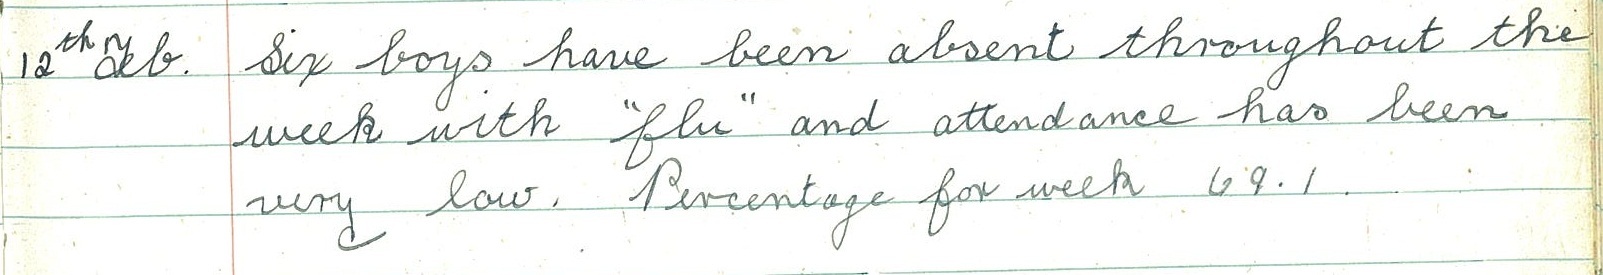 12th Feb. Six boys have been absent throughout the
week with "flu" and attendance has been
very low. Percentage for week 69.1.